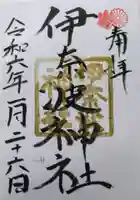 奉拝
伊奈波神社
令和六年一月二十六日